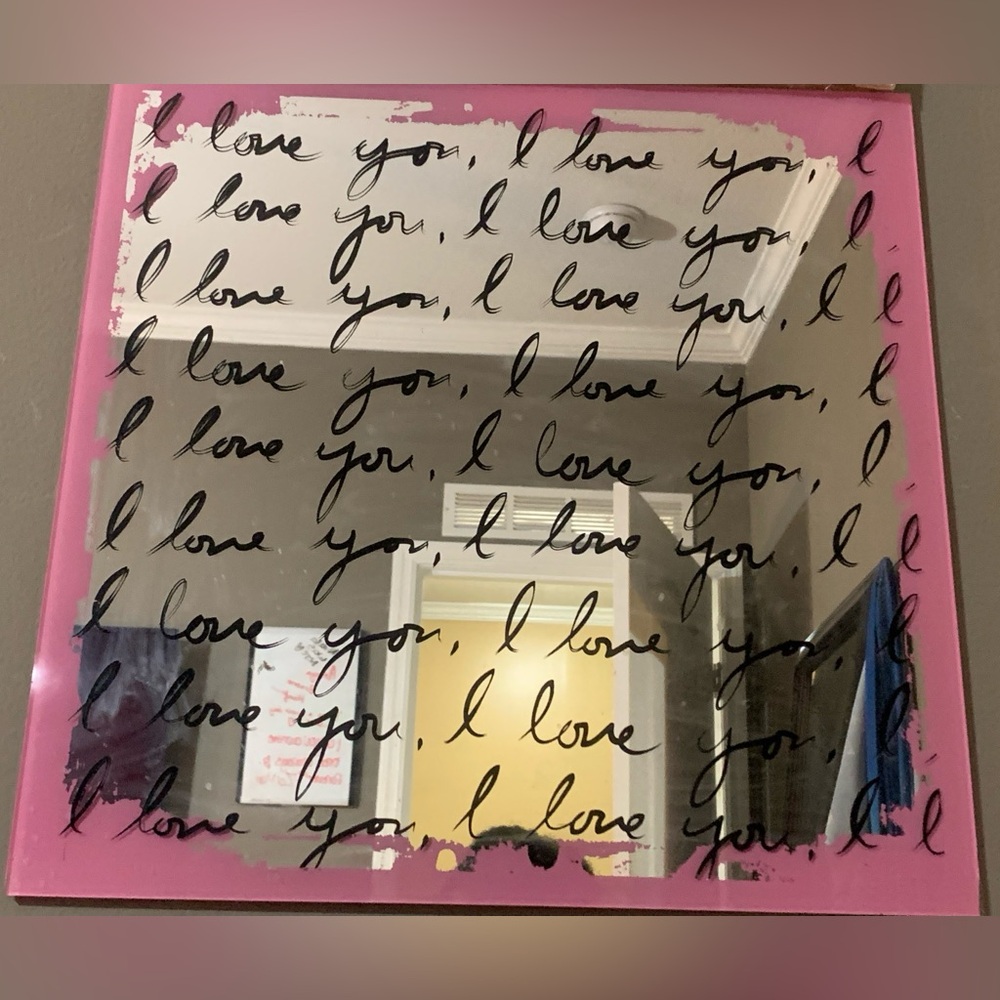 I love you, I love you, I
I love you, I love you, I
I love you, I love you, I l
I love you, I love you, I
I love you, I love you, I
I love you, I love you, I l
I love you, I love you, I
I love you, I love you, I
I love you, I love you, I l